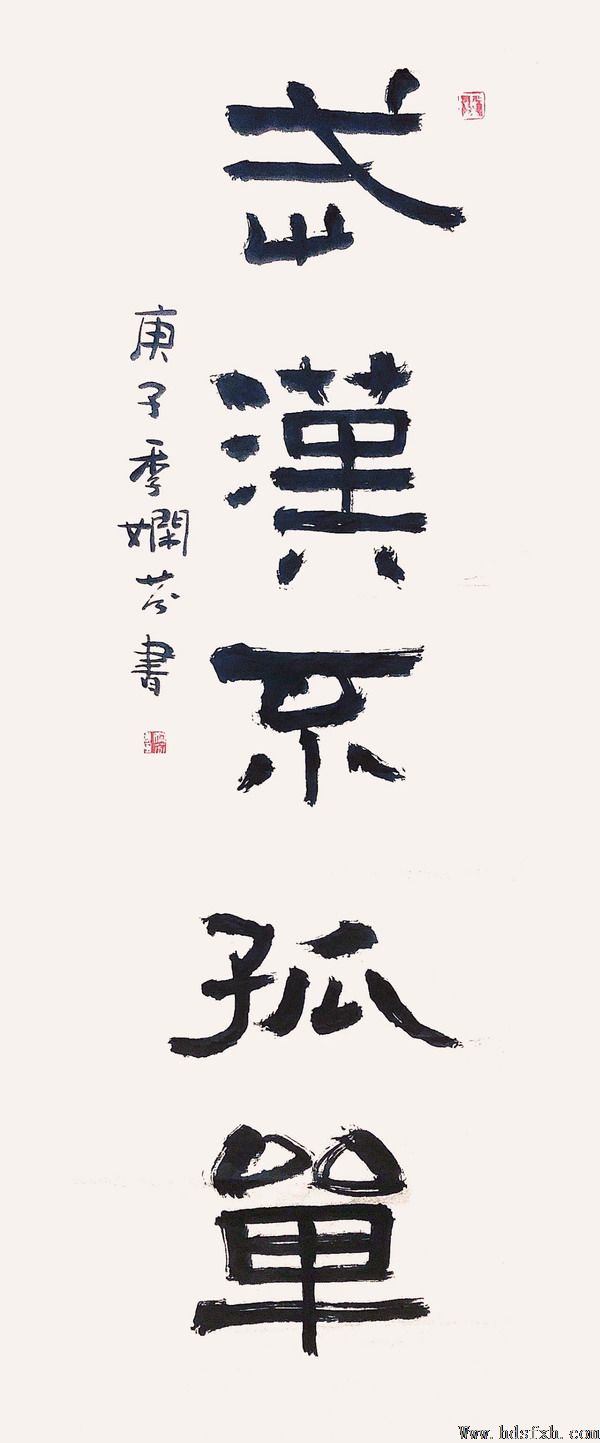 武漢不孤單
庚子季嫻芬書
Www.hdsfxh.com